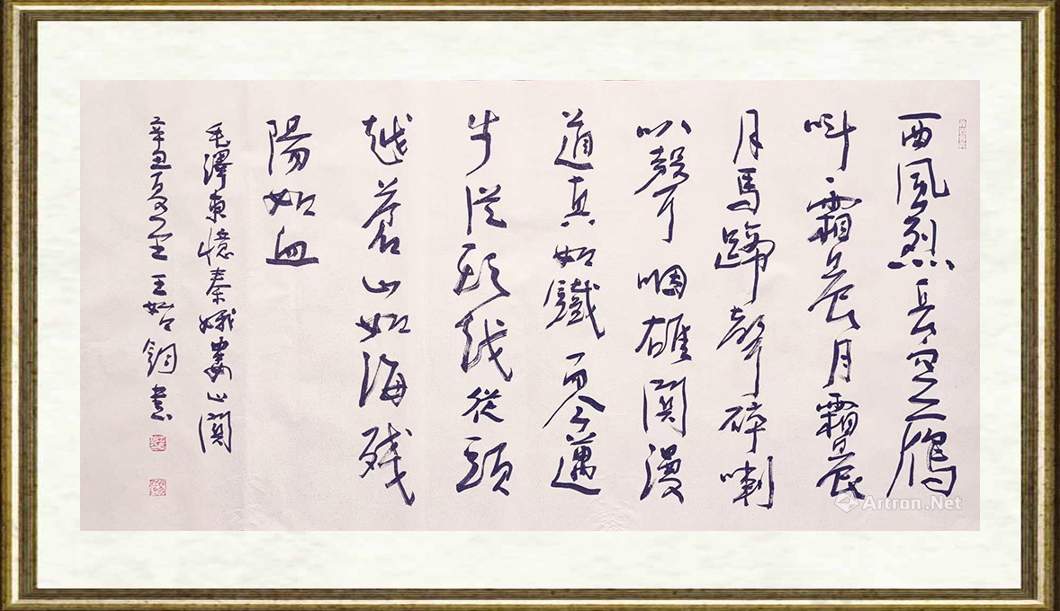 西風烈長空雁
叫霜晨月霜晨
月馬蹄聲碎喇
叭聲咽雄関漫
道真如鐵而今邁
步從頭越從頭
越蒼山如海残
陽如血
毛澤東憶秦娥婁山関
辛丑夏至 王鈞書
Artron.Net